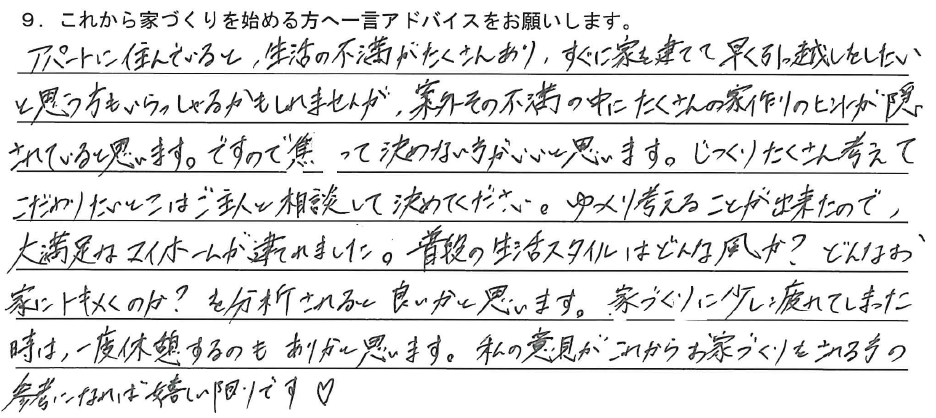 9．これから家づくりを始める方へ一言アドバイスをお願いします。
アパートに住んでいると，生活の不満がたくさんあり，すぐに家を建てて早く引っ越しをしたい
と思う方もいらっしゃるかもしれませんが，案外その不満の中にたくさんの家作りのヒントが隠
されていると思います。ですので焦って決めない方がいいと思います。じっくりたくさん考えて
こだわりたいとこはご主人と相談して決めてください。ゆっくり考えることが出来たので，
大満足なマイホームが建てれました。普段の生活スタイルはどんな風か？どんなお
家にトキメくのか？を分析されると良いかと思います。家づくりに少し疲れてしまった
時は，一度休憩するのもありかと思います。私の意見がこれからお家づくりをされる方の
参考になれば嬉しい限りです♡